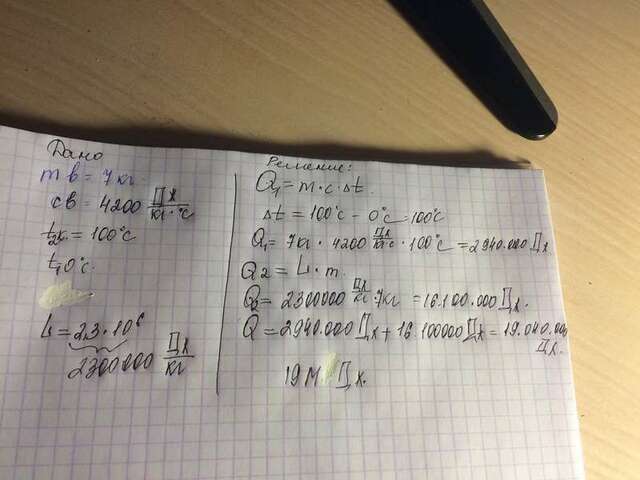 Дано
m в = 7 кг.
св = 4200 Дж/кг·°с
t₂к. = 100°с
t₁ 0°с.
L = 2,3·10⁶
2300000 Дж/кг
Решение:
Q₁ = m·c·Δt.
Δt = 100°с - 0°с 100°с
Q₁ = 7кг · 4200 Дж/кг·с · 100°с = 2940.000 Дж
Q2 = L·m.
Q₂ = 2300000 Дж/кг · 7кг = 16.100.000 Дж.
Q = 2940.000 Дж + 16.100000 Дж = 19.040.000
Дж.
19 М Дж.